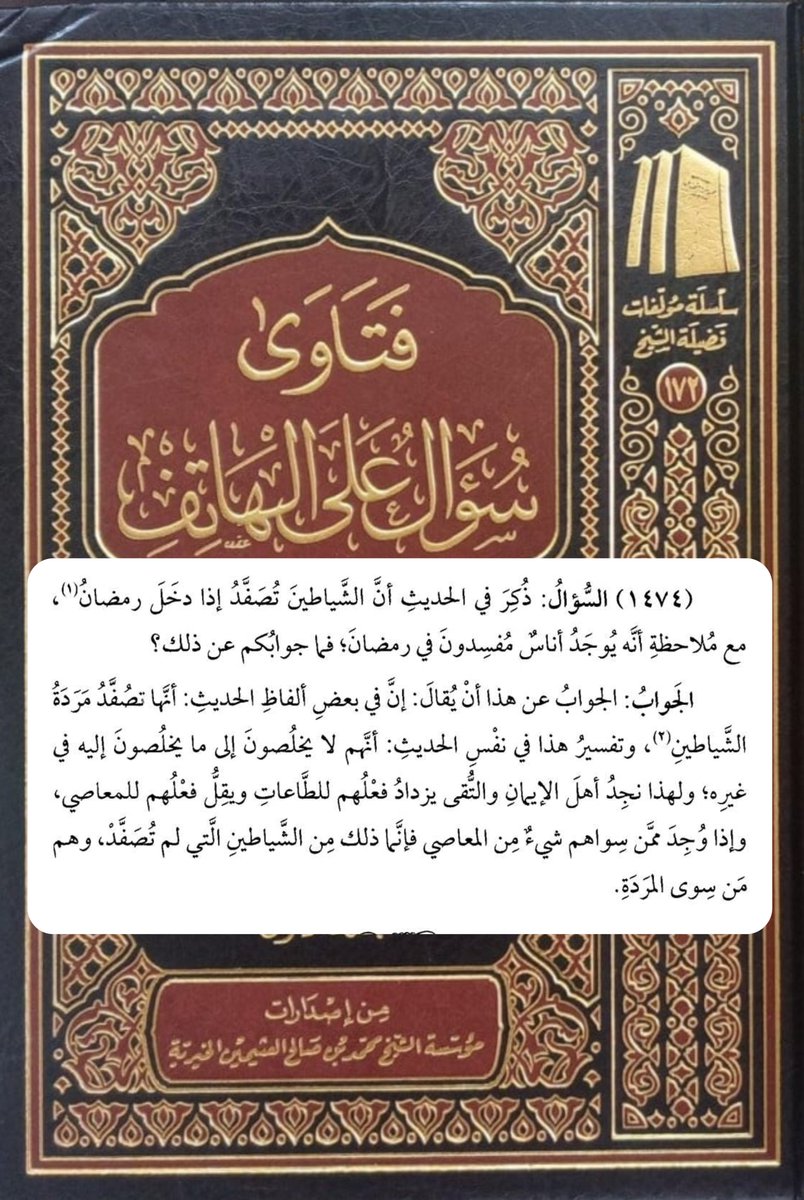 سلسلة مؤلفات
فضيلة الشيخ
١٧٢
فَتَاوَى
سُؤَالٌ عَلَى الهَاتِفِ
(١٤٧٤) السُّؤالُ: ذُكِرَ في الحديثِ أنَّ الشَّياطينَ تُصَفَّدُ إذا دخَلَ رمضانُ(١)،
مع مُلاحظةِ أنَّه يُوجَدُ أناسٌ مُفسِدونَ في رمضانَ؛ فما جوابُكم عن ذلك؟
الجَوابُ: الجوابُ عن هذا أنْ يُقالَ: إنَّ في بعضِ ألفاظِ الحديثِ: أنَّها تصُفَّدُ مَرَدَةُ
الشَّياطينِ(٢)، وتفسيرُ هذا في نفْسِ الحديثِ: أنَّهم لا يخلُصونَ إلى ما يخلُصونَ إليه في
غيرِه؛ ولهذا نجِدُ أهلَ الإيمانِ والتُّقى يزدادُ فعْلُهم للطَّاعاتِ ويقِلُّ فعْلُهم للمعاصي،
وإذا وُجِدَ ممَّن سِواهم شيءٌ مِن المعاصي فإنَّما ذلك مِن الشَّياطينِ الَّتي لم تُصَفَّدْ، وهم
مَن سِوى المرَدَةِ.
من إصدارات
مؤسسة الشيخ محمد بن صالح العثيمين الخيرية